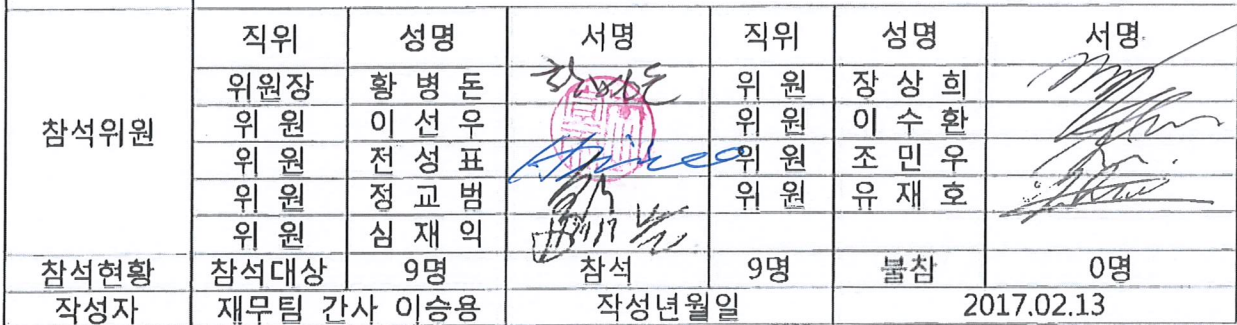 직위 성명 서명 직위 성명 서명
위원장 황 병 돈 위 원 장 상 희
참석위원
위 원 이 선 우 위 원 이 수 환
위 원 전 성 표 위 원 조 민 우
위 원 정 교 범 위 원 유 재 호
위 원 심 재 익
참석현황 참석대상 9명 참석 9명 불참 0명
작성자 재무팀 간사 이승용 작성년월일 2017.02.13